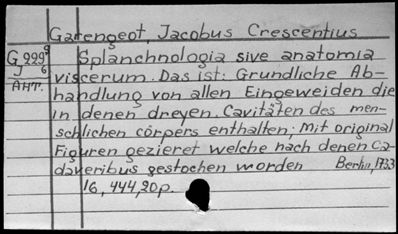 Garengeot, Jacobus Crescentius
G 999 9 Splanchnologia sive anatomia
J 6 viscerum. Das ist: Grundliche Ab-
Ант. handlung von allen Eingeweiden die
in denen dreyen Cavitäten des men-
schlichen cörpers enthalten; mit original
Figuren gezieret welche nach denen ca-
daveribus gestochen worden Berlin, 1733
16, 444, 20 p.